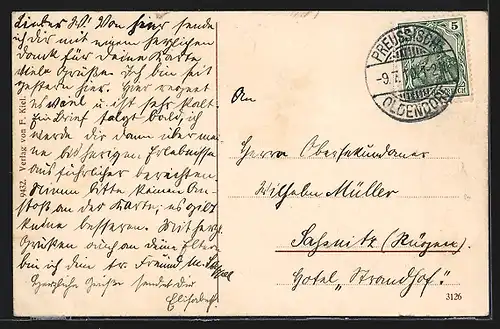 Lieber W! Von hier sende
ich dir mit einem herzlichen
Dank für deine Karte
viele Grüße. Ich bin seit
gestern hier. Hier regnet
es viel u. ist sehr kalt.
Ein Brief folgt bald, ich
werde dir dann über meine
bisherigen Erlebnisse
ausführlicher berichten.
Nimm bitte keinen Anstoß
an der Karte, es gibt
keine besseren. Mit herzl.
Grüßen auch an deine Eltern
bin ich dein tr. Freund
Herzliche Grüße sendet dir
Elisabeth.
9432 Verlag von F. Kiel
PREUSSISCH
-9.7.
OLDENDORF
5
An
Herrn Obersekundaner
Wilhelm Müller
Saßnitz (Rügen).
Hotel „Strandhof."
3126